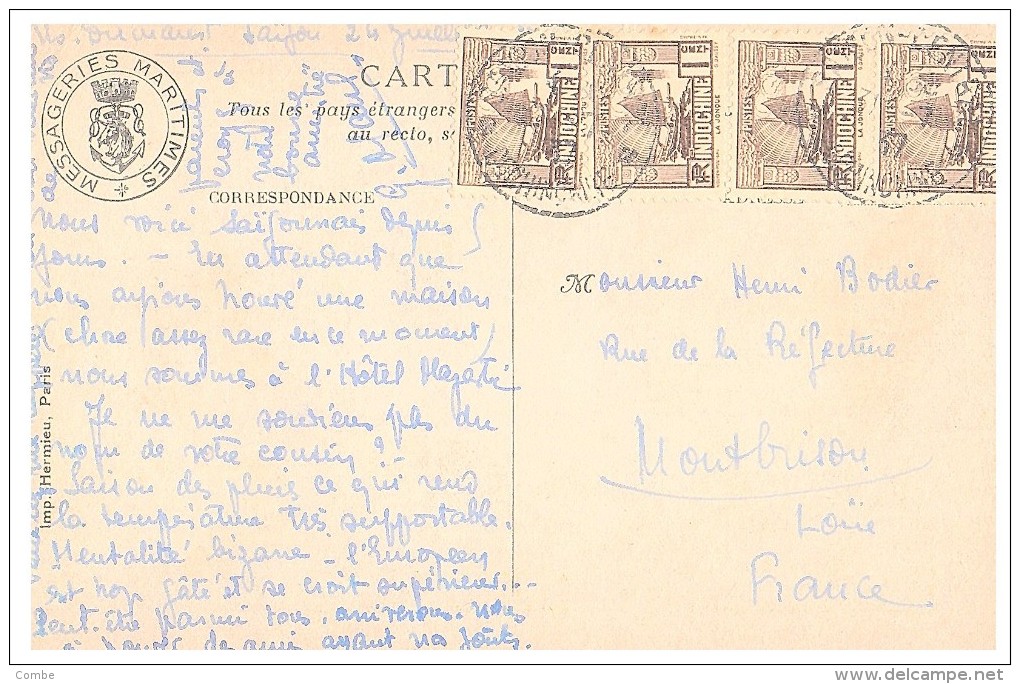 Saïgon 24 Juillet
MESSAGERIES MARITIMES
CART
Tous les pays étrangers
au recto, s
CORRESPONDANCE
ADRESSE
POSTES
1
INDOCHINE
LA JONQUE
POSTES
1
INDOCHINE
LA JONQUE
POSTES
1
INDOCHINE
LA JONQUE
POSTES
1
INDOCHINE
nous voici saïgonnais depuis 5
jours. - En attendant que
nous ayions trouvé une maison
(chose assez rare en ce moment)
nous sommes à l'Hôtel Majestic
Je ne me souviens pas du
nom de votre cousin ? -
Saison des pluies ce qui rend
la température très supportable.
Mentalité bizarre - l'Européen
est trop gâté et se croit supérieur...
Peut-être parmi tous, arriverons-nous
à trouver des amis ayant nos goûts
Imp. Hermieu, Paris
Monsieur Henri Bodier
Rue de la Réfecture
Montbrison
Loire
France
Combe
delcampe.net